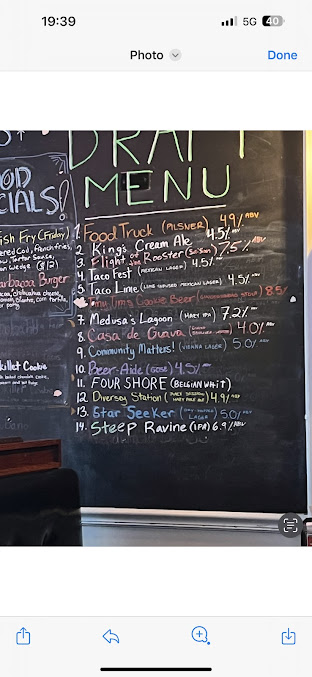 19:39
5G 40
Photo
Done
DRAFT
MENU
OD
CIALS!
ish Fry (Friday)
ered Cod, french fries,
w, Tartar Sauce,
on Wedge ($12)
Barbacoa Burger
1. Food Truck (PILSNER) 4.9% ABV
2. King's Cream Ale 4.5% ABV
3. Flight of the Rooster (Saison) 7.5% ABV
4. Taco Fest (MEXICAN LAGER) 4.5% ABV
5. Taco Lime (LIME INFUSED MEXICAN LAGER) 4.5% ABV
Tiny Tim's Cookie Beer (GINGERBREAD STOUT) 8.5%
7. Medusa's Lagoon (HAZY IPA) 7.2% ABV
8. Casa de Guava 4.0% ABV
9. Community Matters! (VIENNA LAGER) 5.0% ABV
10. Beer-Aide (GOSE) 4.5% ABV
11. FOUR SHORE (BELGIAN WHIT)
12 Diversey Station (HAZY PALE ALE) 4.9% ABV
13. Star Seeker (LAGER) 5.0% ABV
14. Steep Ravine (IPA) 6.9% ABV
killet Cookie